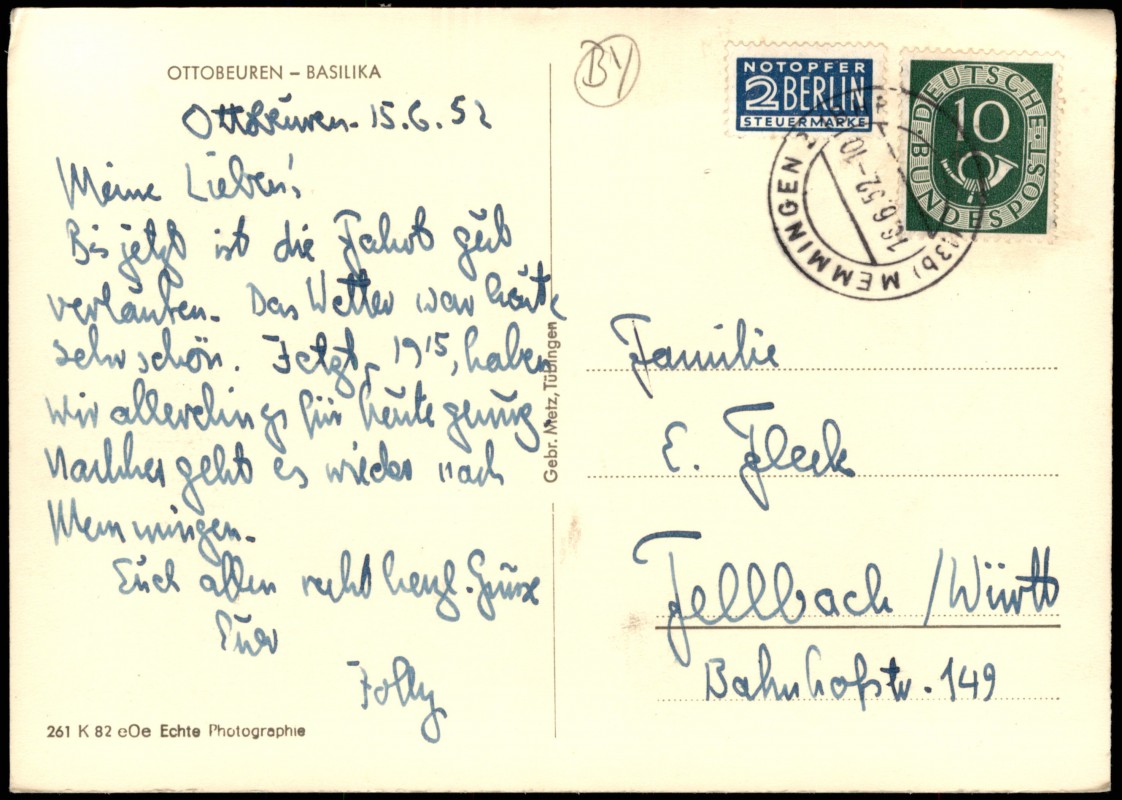 OTTOBEUREN – BASILIKA
Ottobeuren. 15.6.52
Meine Lieben!
Bis jetzt ist die Fahrt gut
verlaufen. Das Wetter war heute
sehr schön. Jetzt, 19¹⁵, haben
wir allerdings für heute genug.
Nachher geht es wieder nach
Memmingen.
Euch allen recht herzl. Grüsse
Euer
261 K 82 eOe Echte Photographie
Gebr. Metz, Tübingen
BY
NOTOPFER
2 BERLIN
STEUERMARKE
DEUTSCHE BUNDESPOST
10
(13b) MEMMINGEN
16.6.52.-10
Familie
E. Fleck
Fellbach /Württ
Bahnhofstr. 149